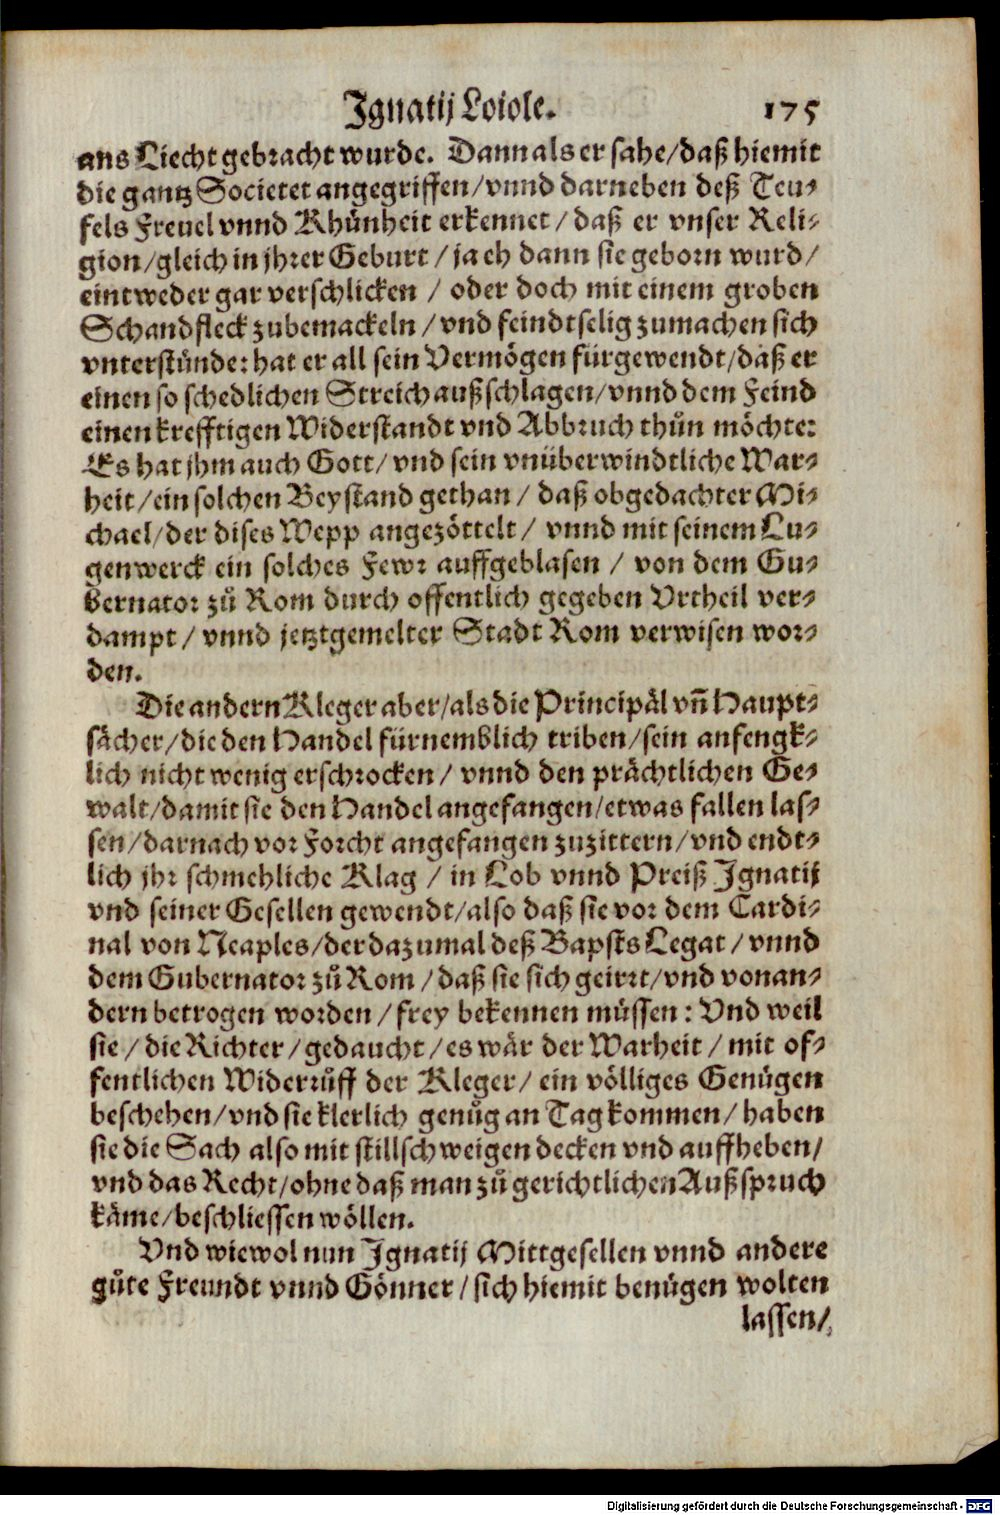 Ignatij Loiole. 175
ans Liecht gebracht wurde. Dann als er sahe/daß hiemit
die gantz Societet angegriffen/vnnd darneben deß Teu-
fels Freuel vnnd Khünheit erkennet/daß er vnser Reli-
gion/gleich in jhrer Geburt/ja eh dann sie geborn wurd/
eintweder gar verschlicken/oder doch mit einem groben
Schandfleck zubemackeln/vnd feindtselig zumachen sich
vnterstünde: hat er all sein Vermögen fürgewendt/daß er
einen so schedlichen Streich außschlagen/vnnd dem Feind
einen krefftigen Widerstandt vnd Abbruch thůn möchte:
Es hat jhm auch Gott/vnd sein vnüberwindtliche War-
heit/ein solchen Beystand gethan/daß obgedachter Mi-
chael/der dises Wepp angezöttelt/vnnd mit seinem Lu-
genwerck ein solches Fewr auffgeblasen/von dem Gu-
bernator zů Rom durch offentlich gegeben Vrtheil ver-
dampt/vnnd jetztgemelter Stadt Rom verwisen wor-
den.
Die andern Kleger aber/als die Principäl vñ Haupt-
sächer/die den Handel fürnemblich triben/sein anfengk-
lich nicht wenig erschrocken/vnnd den prächtlichen Ge-
walt/damit sie den Handel angefangen/etwas fallen las-
sen/darnach vor Forcht angefangen zuzittern/vnd endt-
lich jhr schmehliche Klag/in Lob vnnd Preiß Ignatij
vnd seiner Gesellen gewendt/also daß sie vor dem Cardi-
nal von Neaples/der dazumal deß Bapsts Legat/vnnd
dem Gubernator zů Rom/daß sie sich geirrt/vnd von an-
dern betrogen worden/frey bekennen müssen: Vnd weil
sie/die Richter/gedaucht/es wär der Warheit/mit of-
fentlichen Widerrůff der Kleger/ein völliges Genügen
beschehen/vnd sie klerlich genůg an Tag kommen/haben
sie die Sach also mit stillschweigen decken vnd auffheben/
vnd das Recht/ohne daß man zů gerichtlichen Außspruch
käme/beschliessen wöllen.
Vnd wiewol nun Ignatij Mittgesellen vnnd andere
gůte Freundt vnnd Gönner/sich hiemit benügen wolten
lassen/
Digitalisierung gefördert durch die Deutsche Forschungsgemeinschaft - DFG